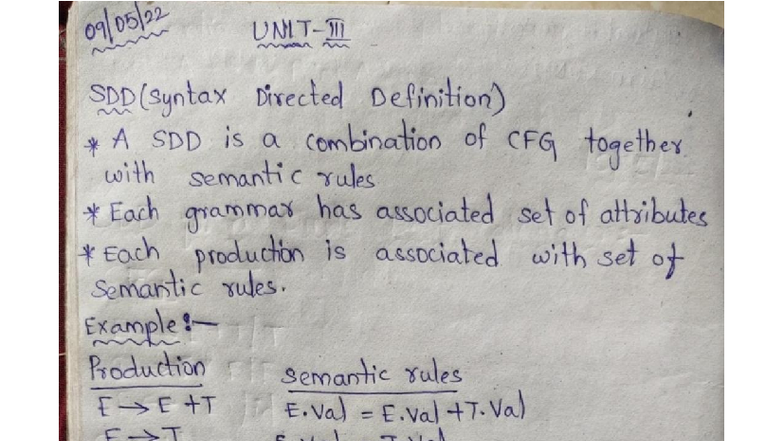 09/05/22
UNIT-III
SDD (Syntax Directed Definition)
* A SDD is a combination of CFG together
with semantic rules
* Each grammar has associated set of attributes
* Each production is associated with set of
semantic rules.
Example :-
Production semantic rules
E → E + T E.Val = E.Val + T.Val
E → T E.Val = T.Val